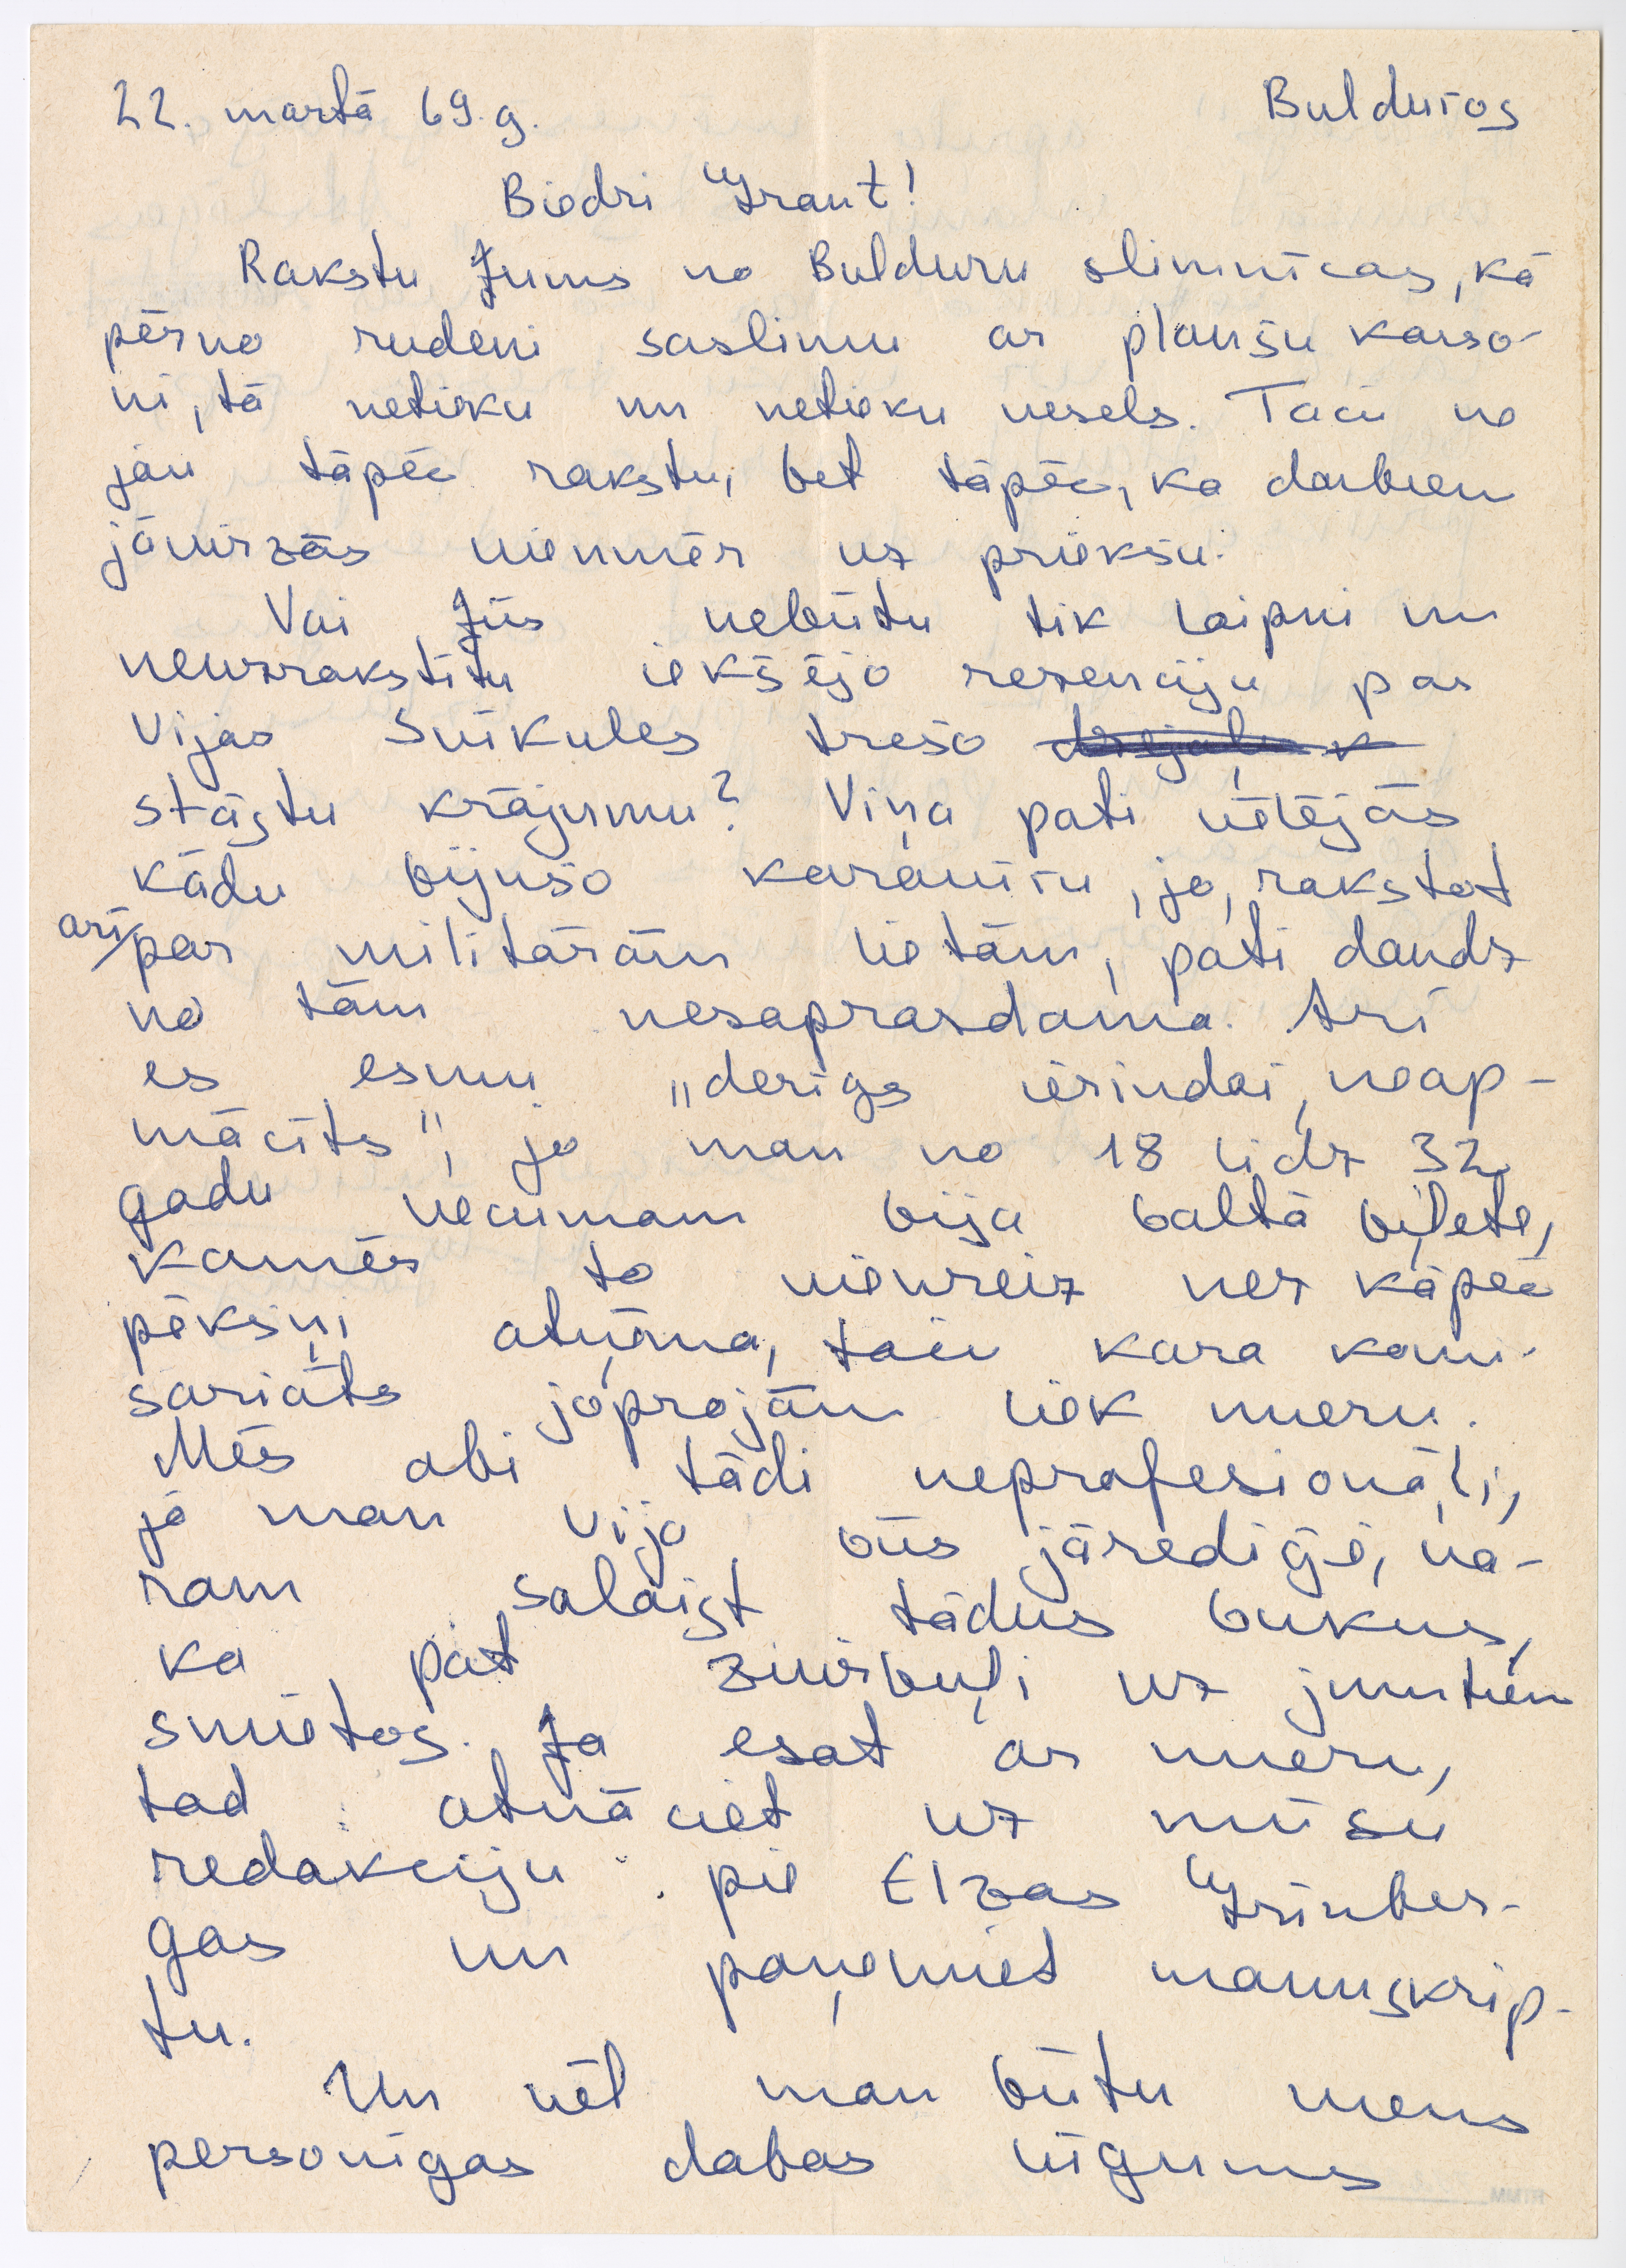 22. martā 69.g. Bulduros
Biedri Grant!
Rakstu Jums no Bulduru slimnīcas, kā
pērno rudeni saslimu ar plaušu karso-
ni, tā netieku un netieku vesels. Taču ne
jau tāpēc rakstu, bet tāpēc, ka darbiem
jāvirzās vienmēr uz priekšu.
Vai Jūs nebūtu tik laipni un
neuzrakstītu iekšējo recenziju par
Vijas Šuikules trešo
stāstu krājumu? Viņa pati vēlējās
kādu bijušo karavīru, jo, rakstot
arī/par militārām lietām, pati daudz
no tām nesaprazdama. Arī
es esmu "derīgs ierindai, neap-
mācīts", jo man no 18 līdz 32
gadu vecumam bija baltā biļete,
kamēr to vienreiz nez kāpēc
pēkšņi atņēma, taču kara komi-
sariāts joprojām liek mieru.
Mēs abi tādi neprofesionāļi,
ja man Vija būs jārediģē, va-
ram salaist tādus bukus,
ka pat zvirbuļi uz jumtiem
smietos. Ja esat ar mieru,
tad atnāciet uz mūsu
redakciju pie Elzas Grīnber-
gas un paņemiet manuskrip-
tu.
Un vēl man būtu viens
personīgas dabas lūgums